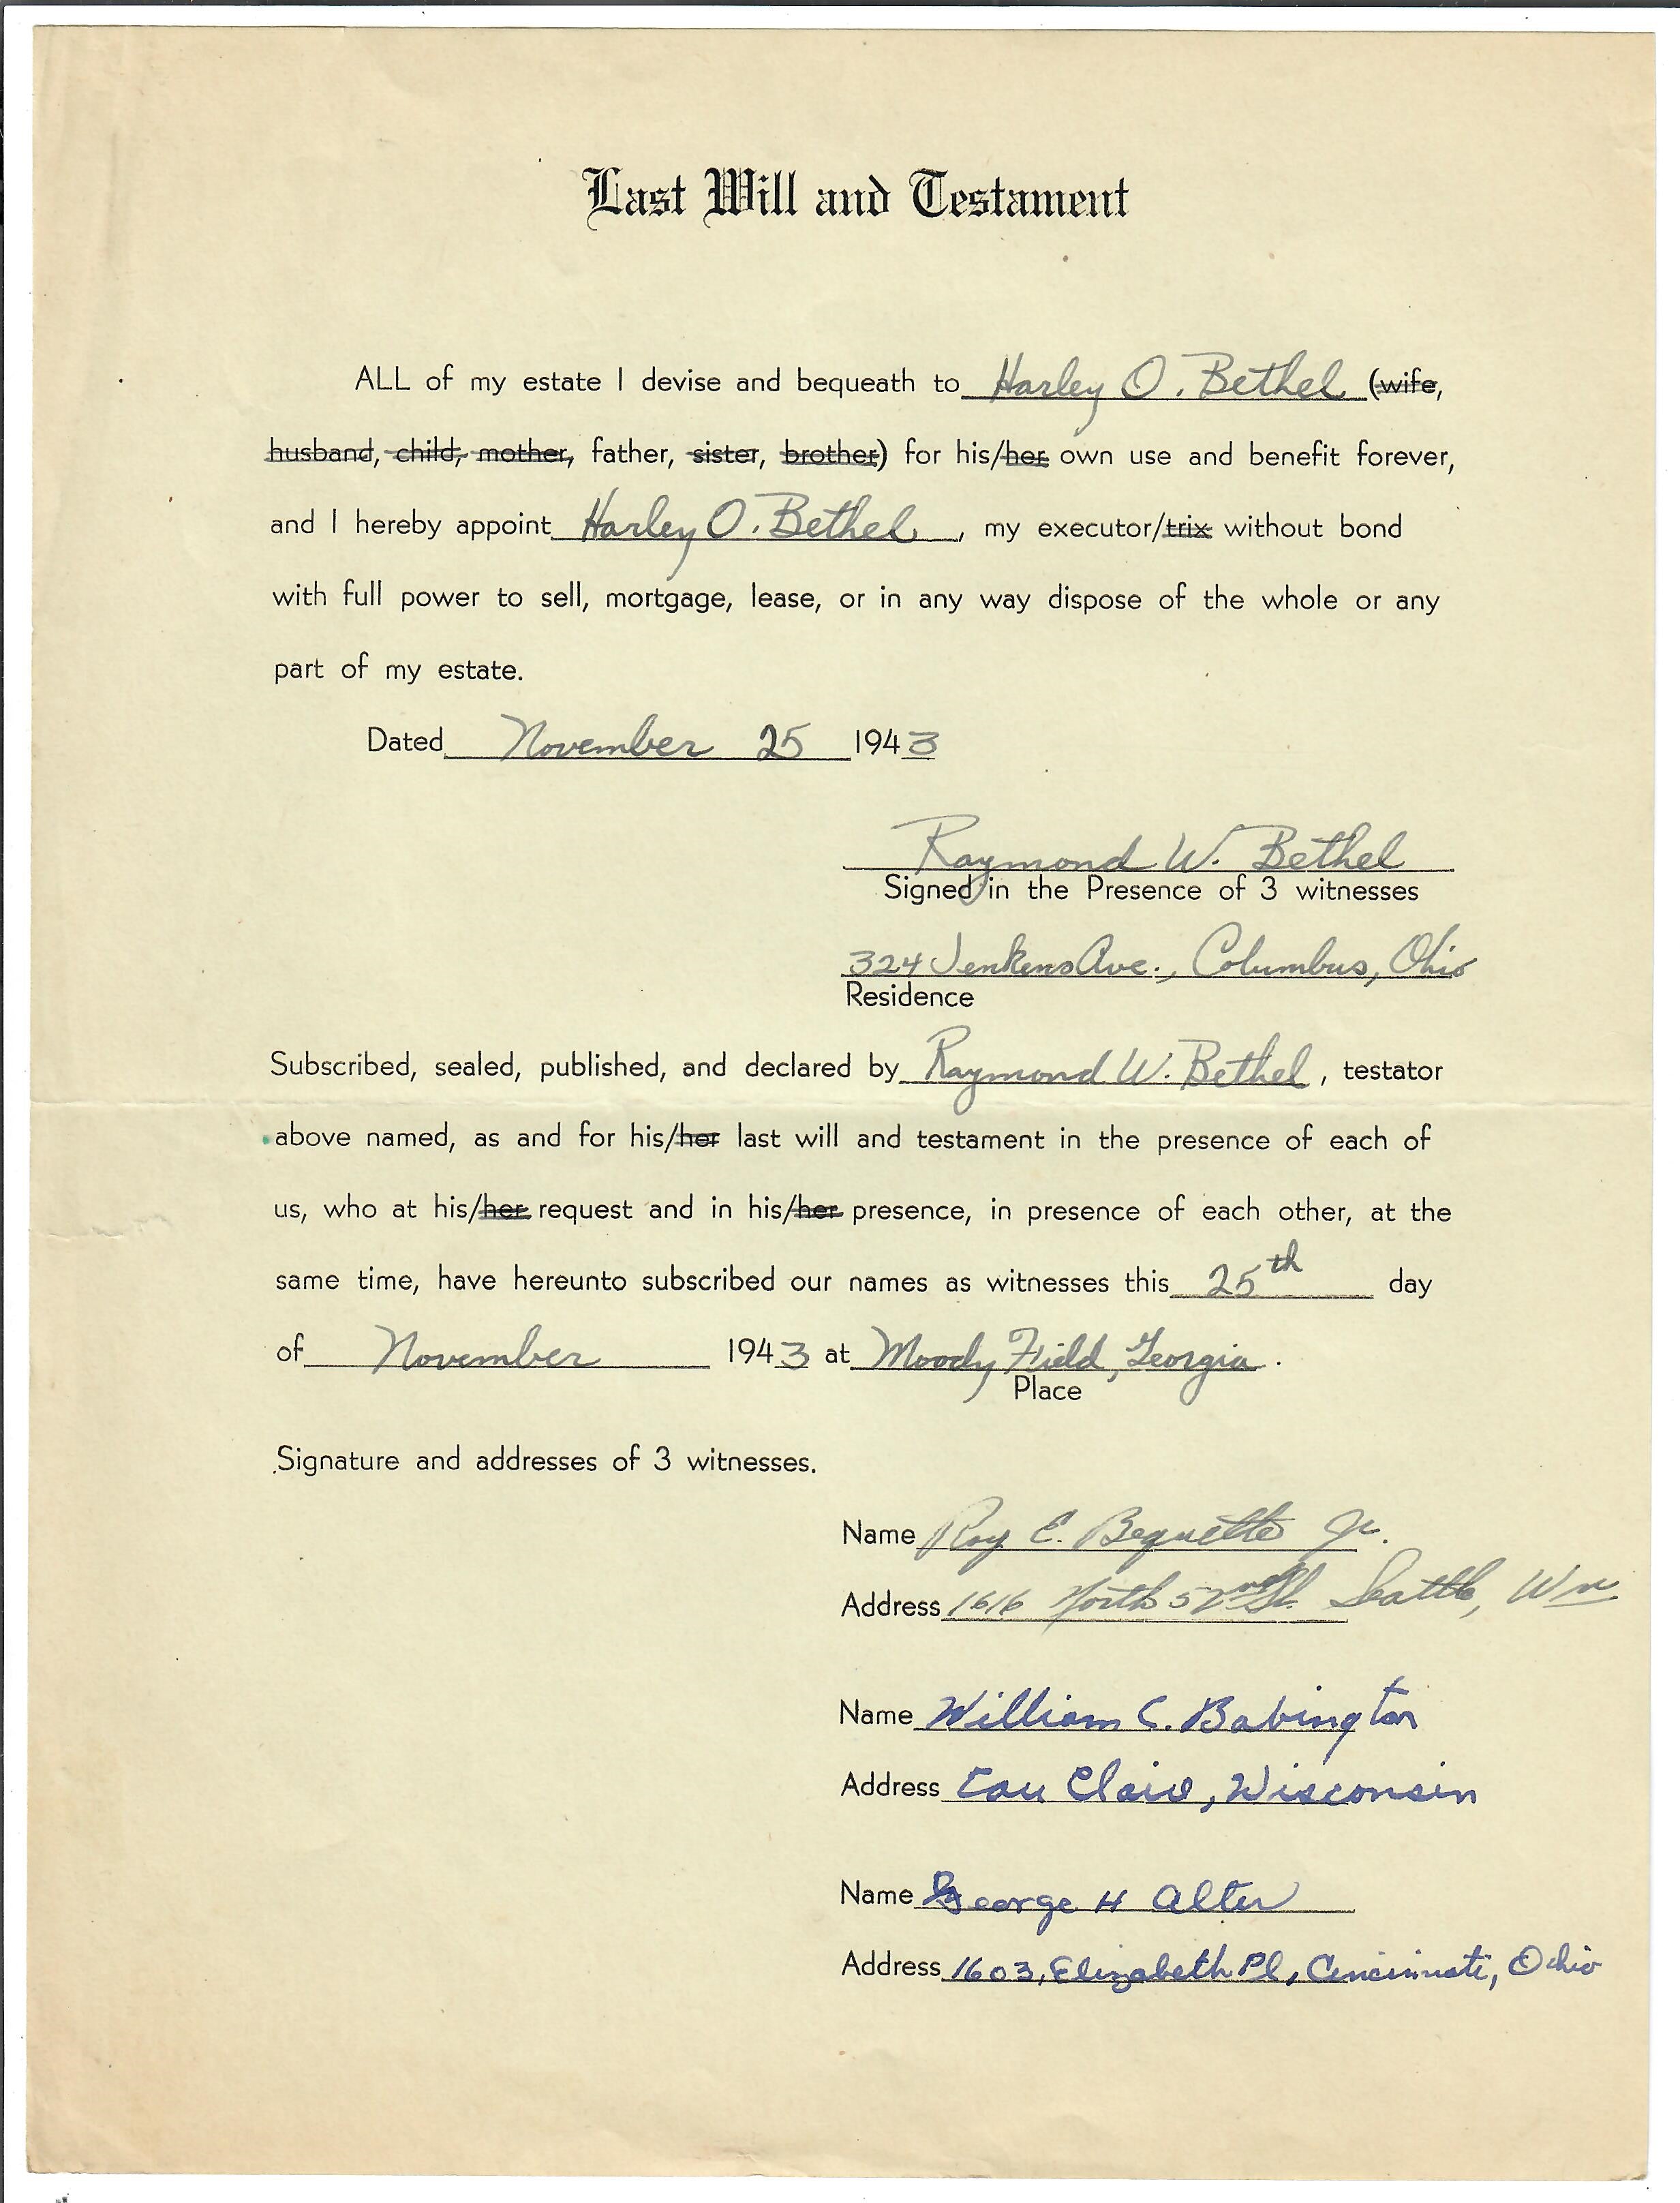 Last Will and Testament
ALL of my estate I devise and bequeath to Harley O. Bethel (wife,
husband, child, mother, father, sister, brother) for his/her own use and benefit forever,
and I hereby appoint Harley O. Bethel, my executor/trix without bond
with full power to sell, mortgage, lease, or in any way dispose of the whole or any
part of my estate.
Dated November 25 1943
Raymond W. Bethel
Signed in the Presence of 3 witnesses
324 Jenkens Ave., Columbus, Ohio
Residence
Subscribed, sealed, published, and declared by Raymond W. Bethel, testator
above named, as and for his/her last will and testament in the presence of each of
us, who at his/her request and in his/her presence, in presence of each other, at the
same time, have hereunto subscribed our names as witnesses this 25th day
of November 1943 at Moody Field, Georgia.
Place
Signature and addresses of 3 witnesses.
Name Roy E. Bequette Jr.
Address 1616 North 52nd St. Seattle, Wn
Name William C. Babington
Address Eau Claire, Wisconsin
Name George H Alter
Address 1603, Elizabeth Pl, Cincinnati, Ohio